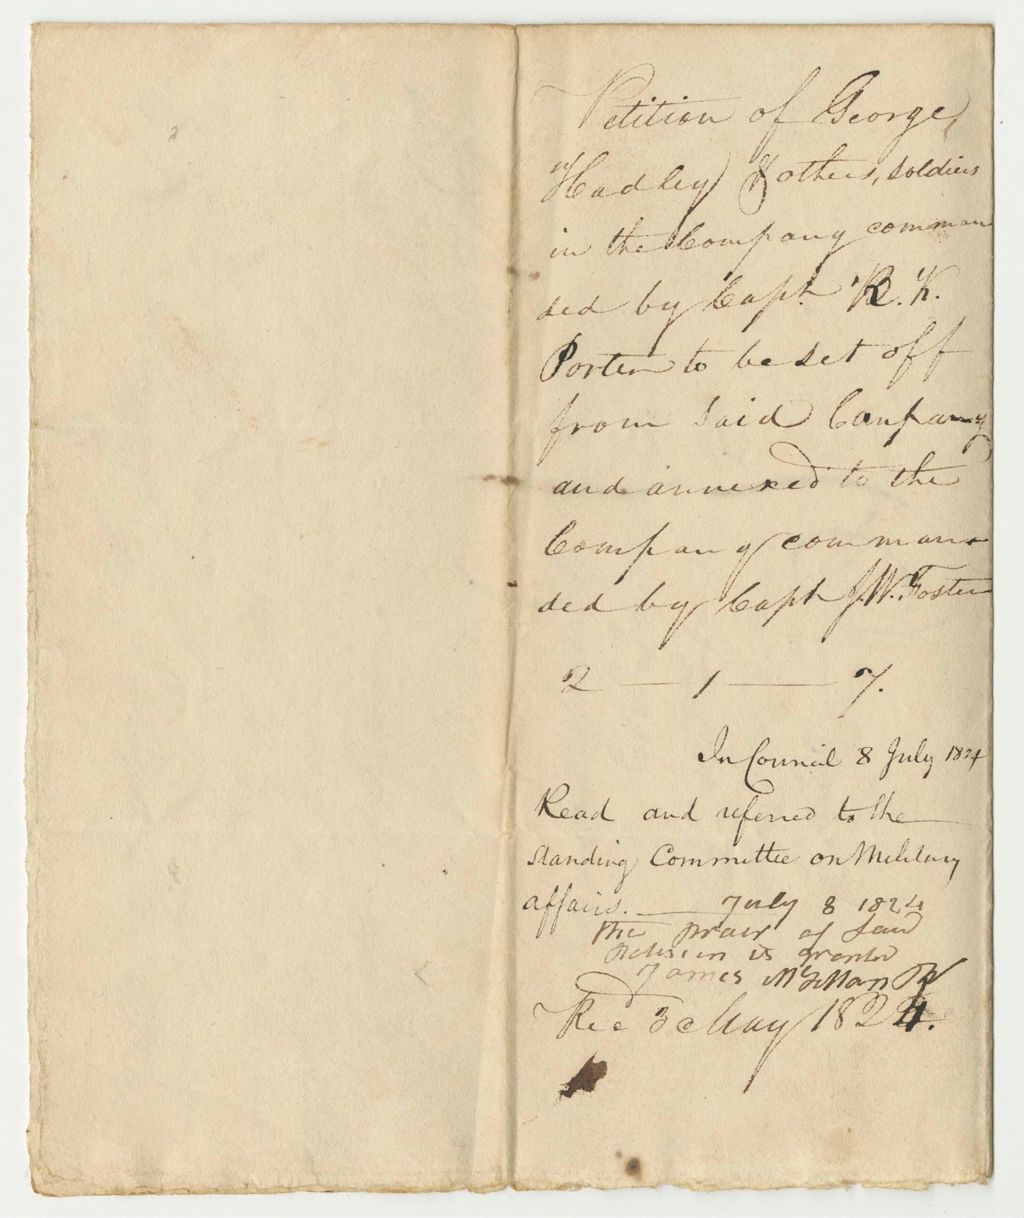 Petition of George
Hadley & others, soldiers
in the Company comman
ded by Capt. R. K.
Porter to be set off
from said Company
and annexed to the
Company comman
ded by Capt J. W. Foster
2 — 1 — 7.
In Council 8 July 1824
Read and referred to the
Standing Committee on Military
affairs. — July 8 1824
the prair of said
petision is granted
James
Rec 3 May 1824.